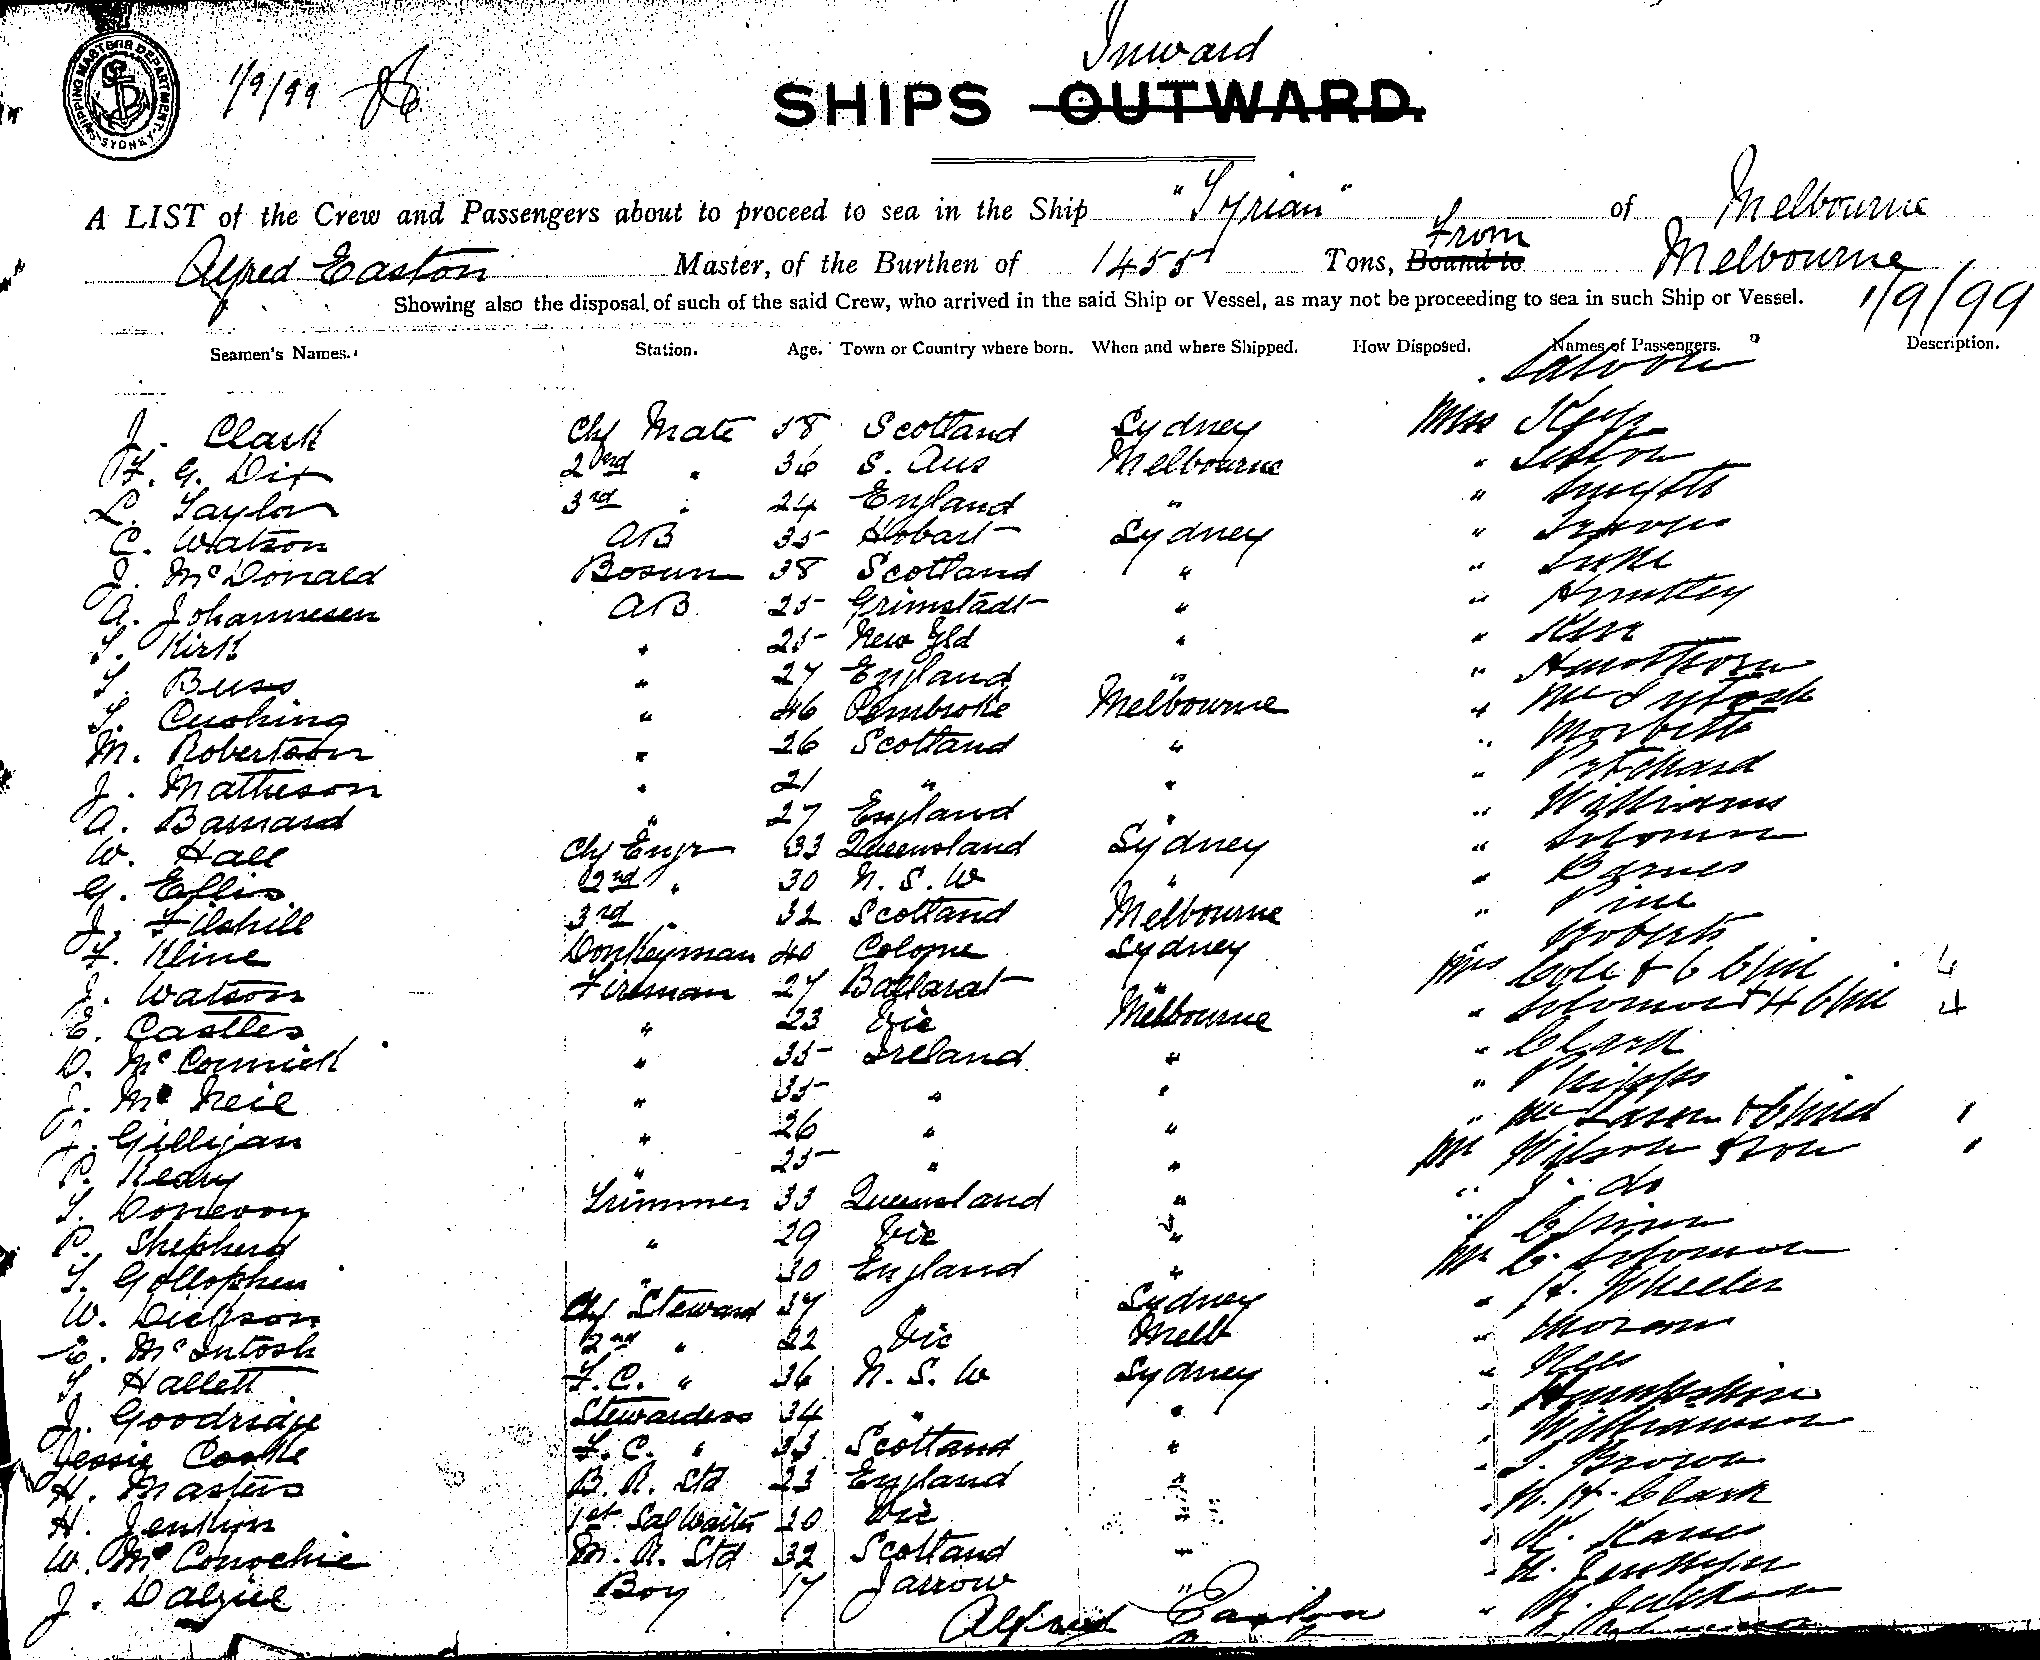 SHIPPING MASTERS DEPARTMENT SYDNEY
1/9/99
Inward
SHIPS OUTWARD.
A LIST of the Crew and Passengers about to proceed to sea in the Ship "Tyrian" of Melbourne
From
Alfred Easton Master, of the Burthen of 1455 Tons, Bound to Melbourne
Showing also the disposal of such of the said Crew, who arrived in the said Ship or Vessel, as may not be proceeding to sea in such Ship or Vessel. 1/9/99
Seamen's Names. Station. Age. Town or Country where born. When and where Shipped. How Disposed. Names of Passengers. Description.
Saloon
J. Clark Chf Mate 58 Scotland Sydney Miss
F. G. Dix 2nd " 36 S. Aus Melbourne "
L. Taylor 3rd " 24 England " " Smyth
C. Watson AB 35 Hobart Sydney "
J. McDonald Bosun 38 Scotland " " Luke
A. Johannesen AB 25 Grimstadt " " Huntley
T. Kirk " 25 New Gld " "
T. Buss " 27 England " " Hawthorn
T. Cushing " 46 Pembroke Melbourne " McIntosh
M. Robertson " 26 Scotland " "
J. Matheson " 21 " " " Pritchard
A. Barnard " 27 England " " Williams
W. Hall Chf Engr 33 Queensland Sydney " Solomon
G. Ellis 2nd " 30 N. S. W " " Barnes
J. Filshill 3rd " 32 Scotland Melbourne " Pine
F. Kline Donkeyman 40 Cologne Sydney Roberts
J. Watson Fireman 27 Ballarat " Mrs Cole & 6 Chil 4
E. Castles " 23 Vic Melbourne " Solomon & 4 Chil 4
D. McCormick " 35 Ireland " " Clark
J. McNeil " 35 " " " Phipps
J. Gilligan " 26 " " " & Child 1
P. Keary " 25 " " Mr Wilson & son 1
T. Donevon Trimmer 33 Queensland " " J. do
P. Shepherd " 29 Vic " "
T. Gollopher " 30 England " Mr C. Solomon
W. Dickson Chf Steward 37 Sydney " H. Wheeler
E. McIntosh 2nd " 22 Vic Melb " Moran
T. Hallett F.C. " 36 N. S. W Sydney "
J. Goodridge Stewardess 34 " " "
Jessie Cooke F. C. " 33 Scotland " " Williamson
H. Masters B. R. Std 23 England " " T. Brown
H. Jenkyn 1st Sal Waiter 20 Vic " " W. H. Clark
W. McConochie M. R. Std 32 Scotland " "
J. Dalziel Boy 17 Jarrow " "
Alfred Easton